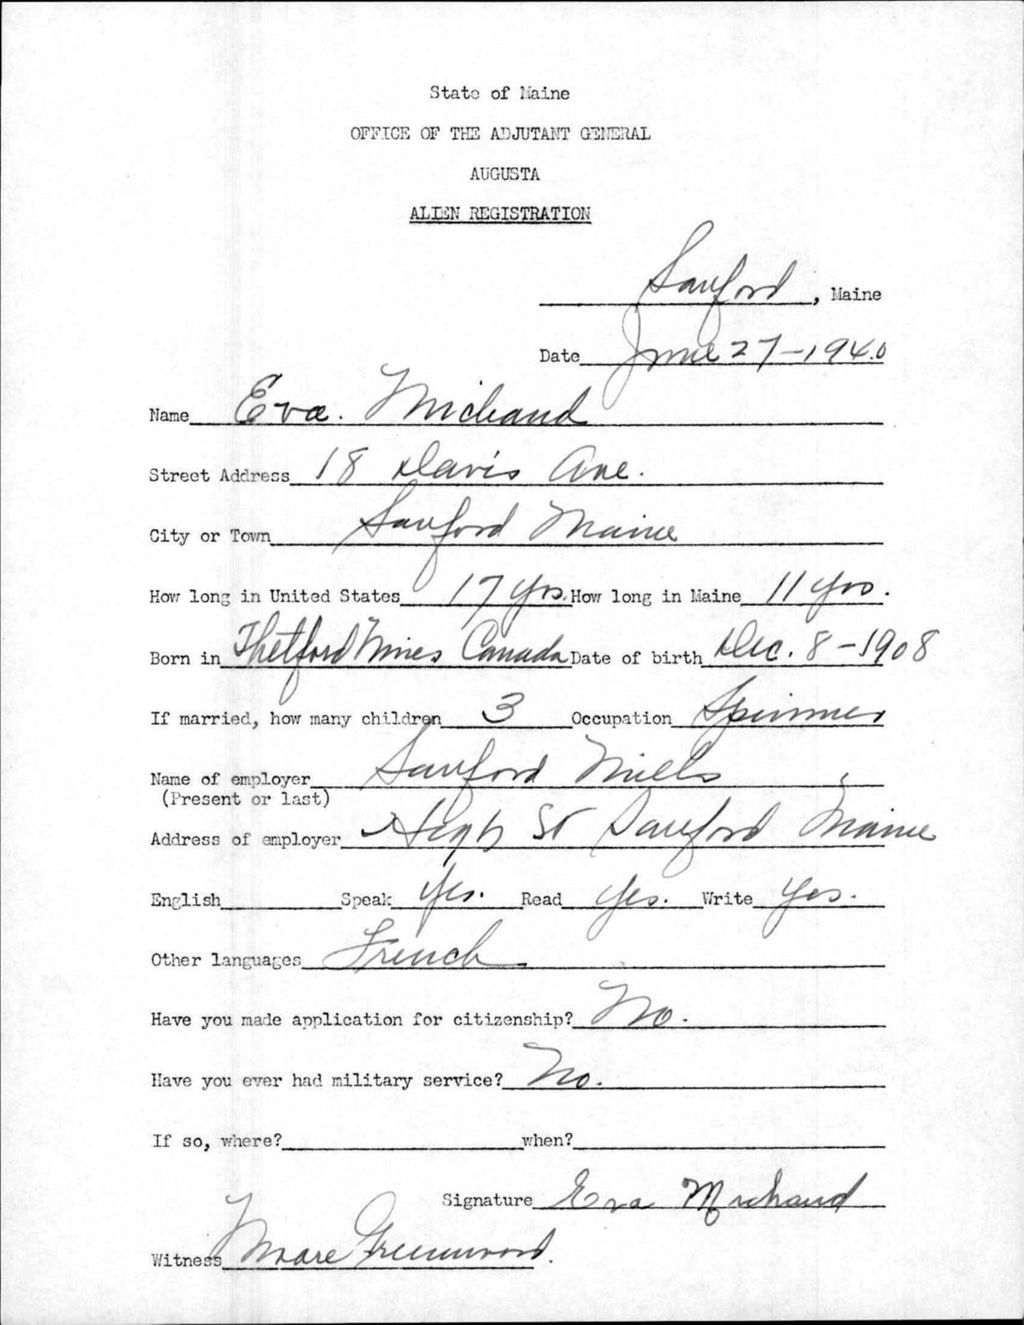 State of Maine
OFFICE OF THE ADJUTANT GENERAL
AUGUSTA
ALIEN REGISTRATION
Sanford, Maine
Date June 27-1940
Name Eva. Michaud
Street Address 18 Davis Ave.
City or Town Sanford Maine
How long in United States 17 yrs. How long in Maine 11 yrs.
Born in Thetford Mines Canada Date of birth Dec. 8-1908
If married, how many children 3 Occupation Spinner
Name of employer Sanford Mills
(Present or last)
Address of employer High St Sanford Maine
English Speak Yes. Read Yes. Write Yes.
Other languages French
Have you made application for citizenship? No.
Have you ever had military service? No.
If so, where? when?
Signature Eva Michaud
Witness Greenwood.